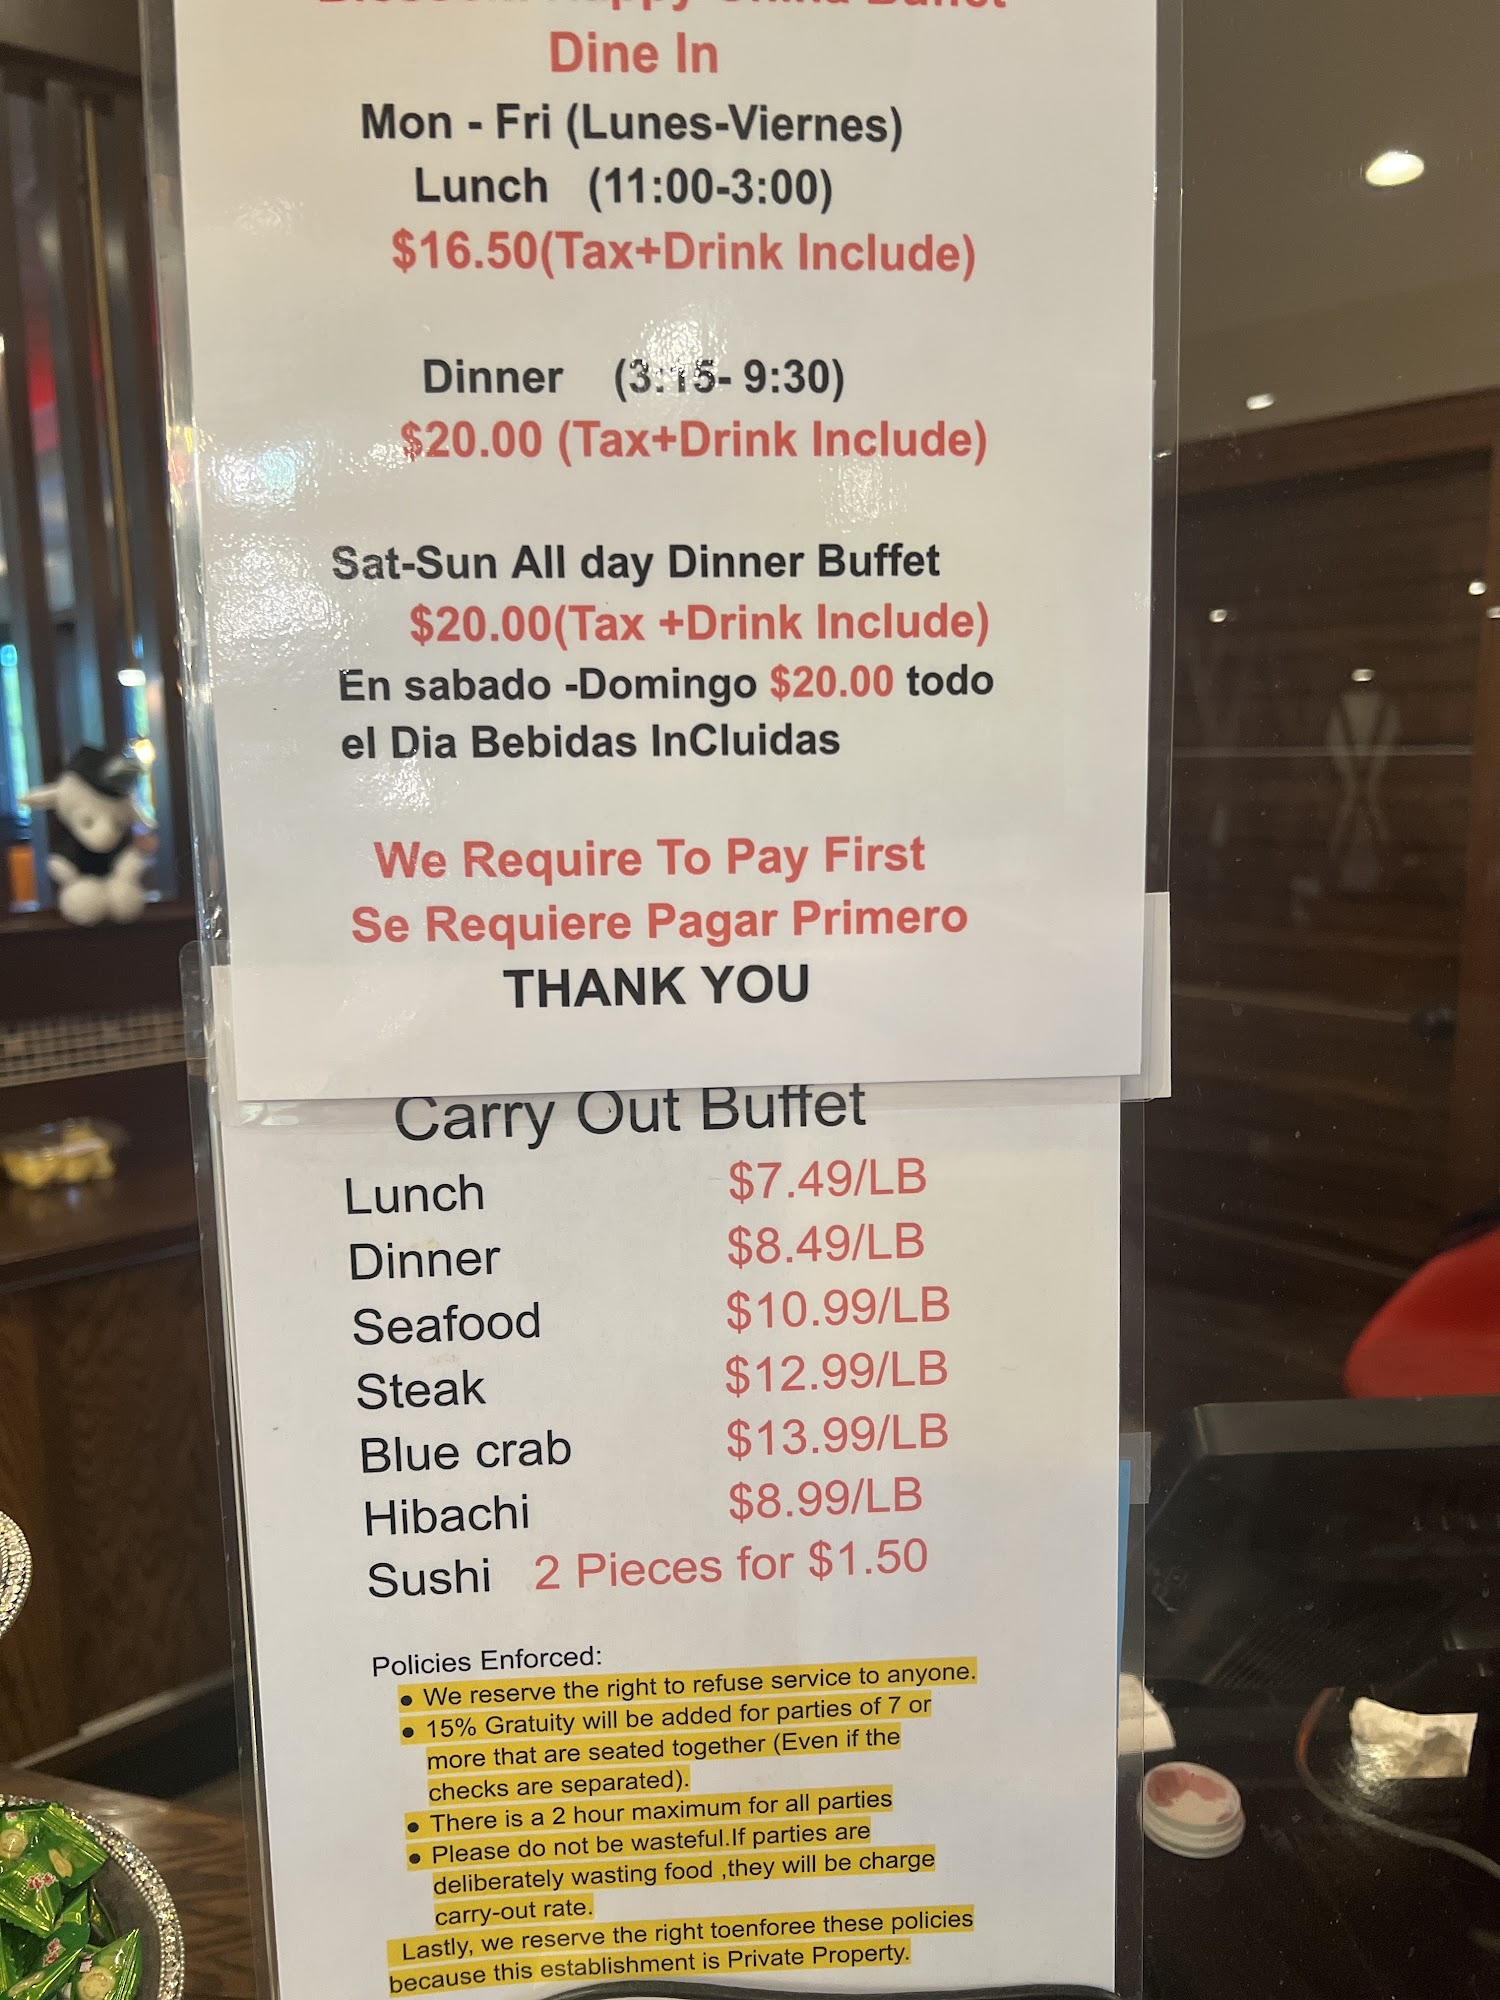 China Buffet
Dine In
Mon - Fri (Lunes-Viernes)
Lunch (11:00-3:00)
$16.50(Tax+Drink Include)
Dinner (3:15- 9:30)
$20.00 (Tax+Drink Include)
Sat-Sun All day Dinner Buffet
$20.00(Tax +Drink Include)
En sabado -Domingo $20.00 todo
el Dia Bebidas InCluidas
We Require To Pay First
Se Requiere Pagar Primero
THANK YOU
Carry Out Buffet
Lunch $7.49/LB
Dinner $8.49/LB
Seafood $10.99/LB
Steak $12.99/LB
Blue crab $13.99/LB
Hibachi $8.99/LB
Sushi 2 Pieces for $1.50
Policies Enforced:
• We reserve the right to refuse service to anyone.
• 15% Gratuity will be added for parties of 7 or
more that are seated together (Even if the
checks are separated).
• There is a 2 hour maximum for all parties
• Please do not be wasteful.If parties are
deliberately wasting food ,they will be charge
carry-out rate.
Lastly, we reserve the right toenforee these policies
because this establishment is Private Property.